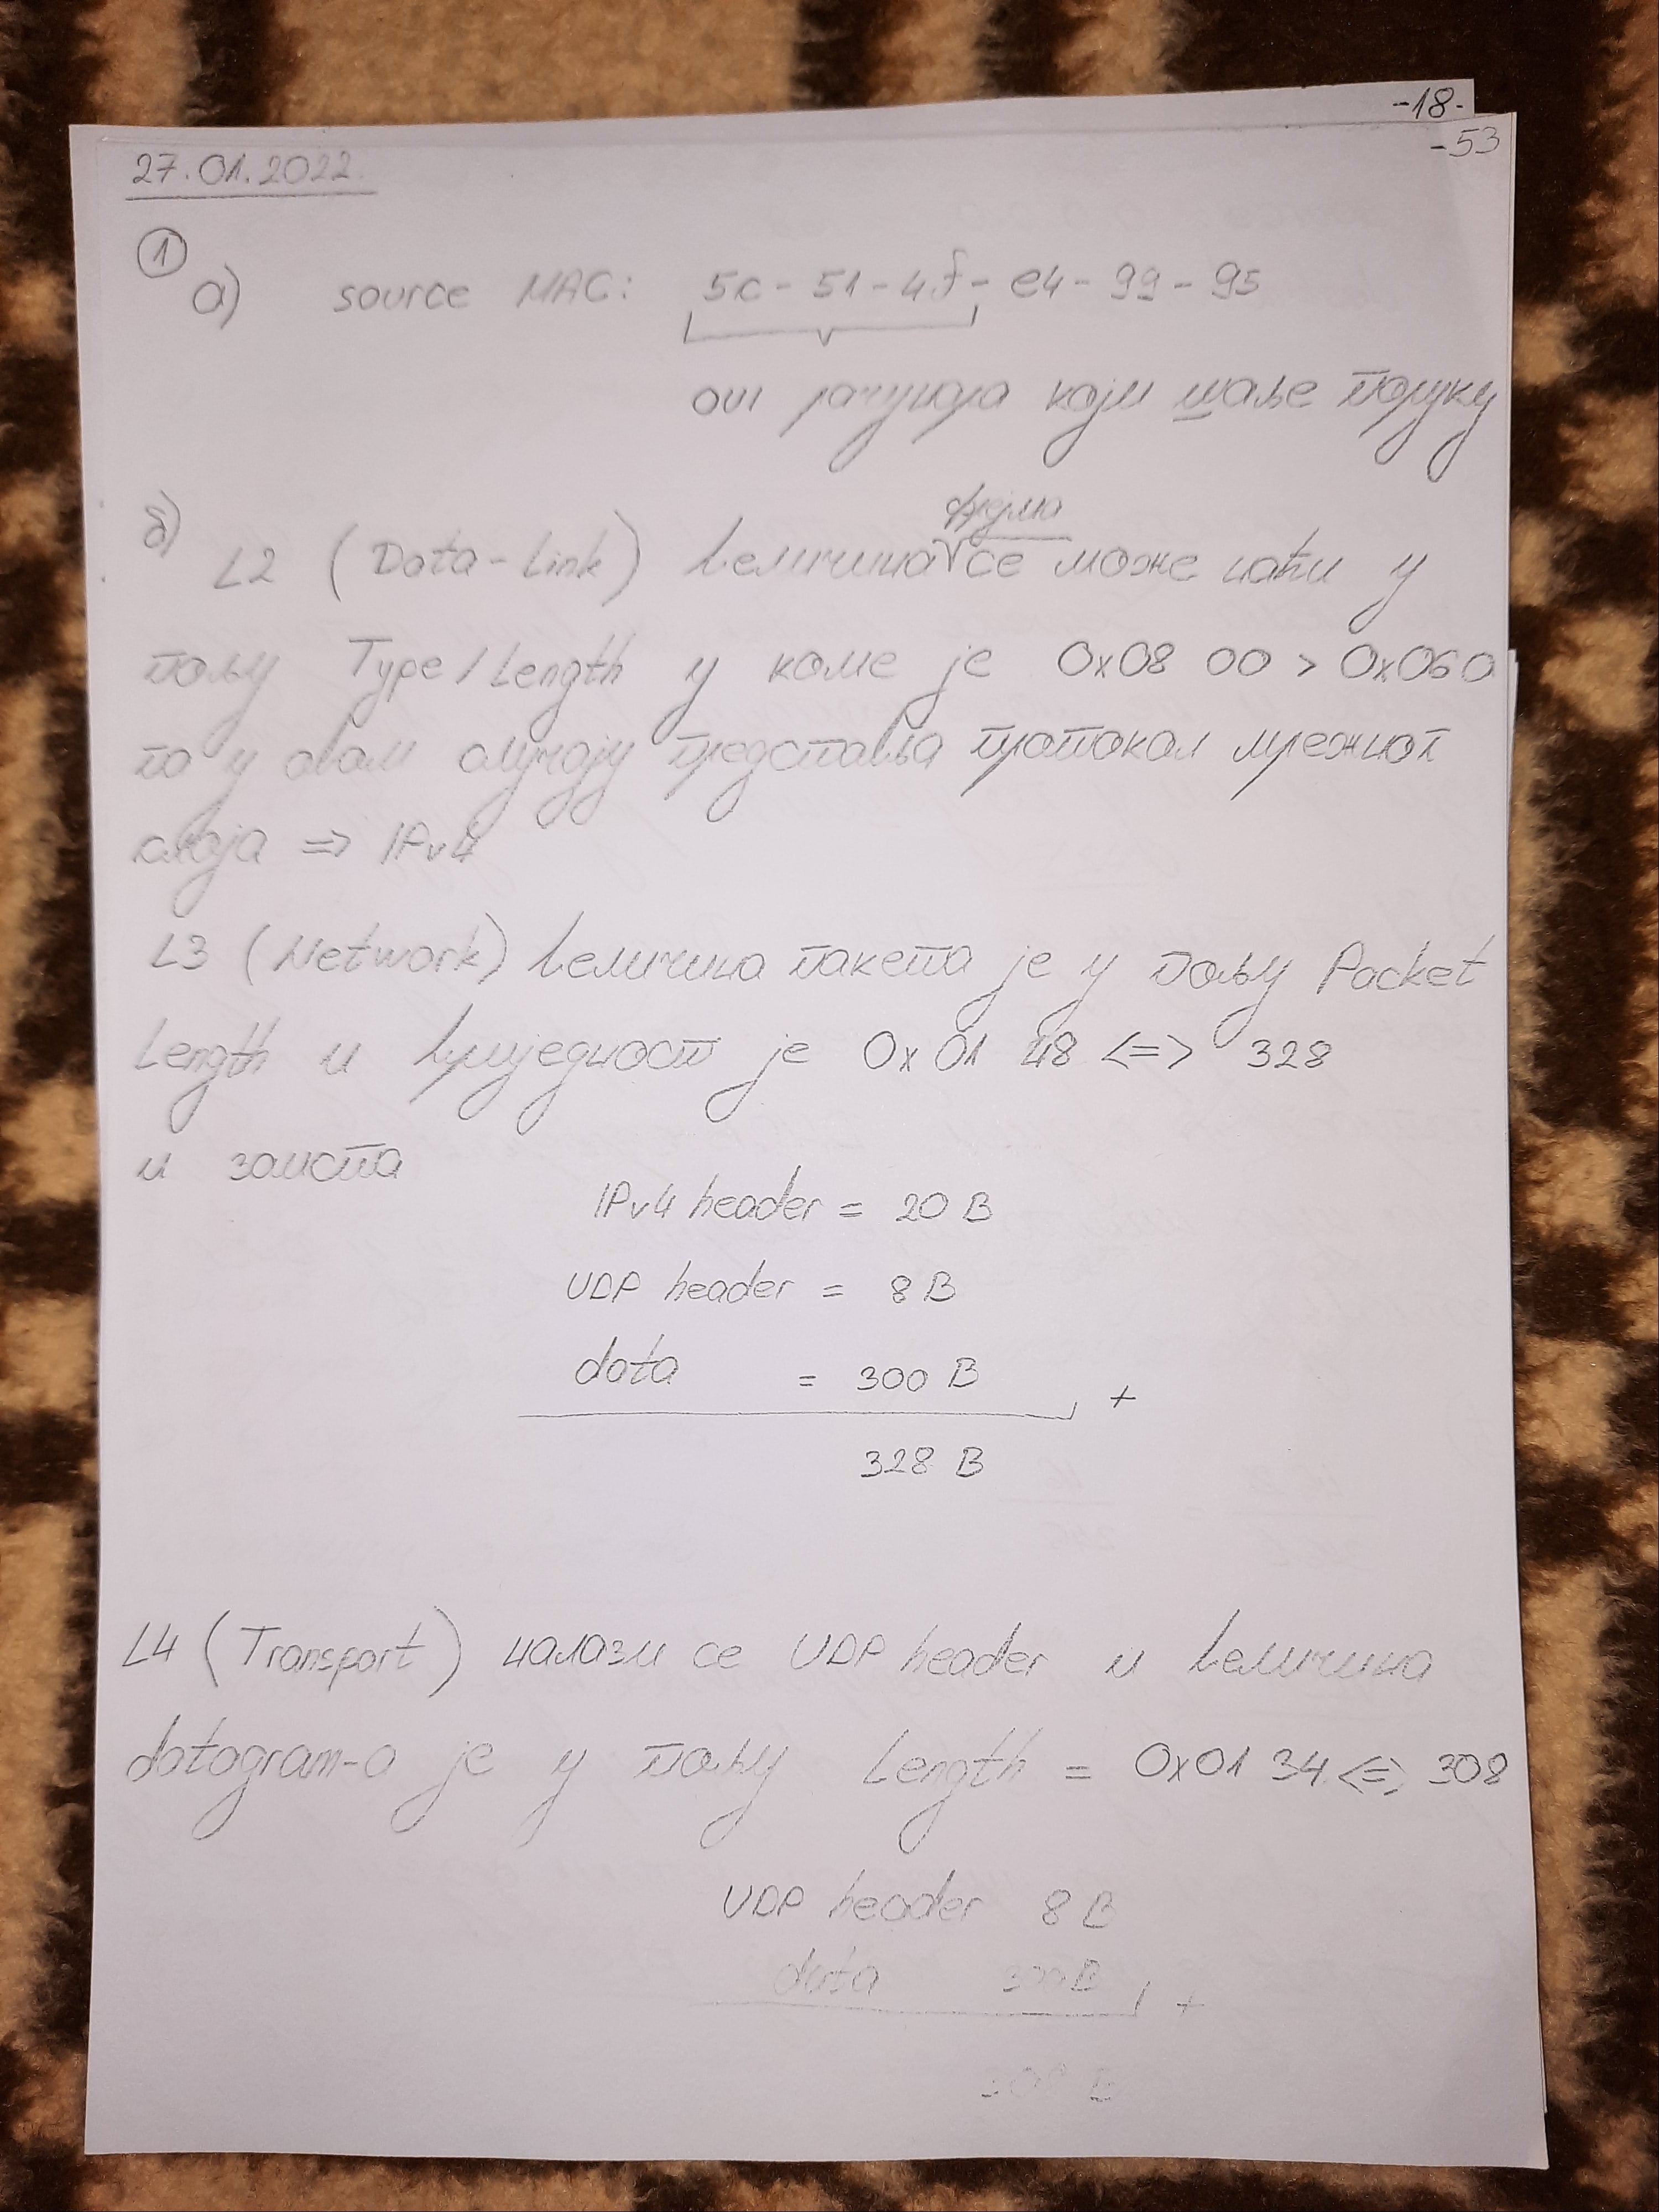 -18-
-53
27.01.2022.
1
а) source MAC: 5c-51-4f-e4-99-95
OUI рачунара који шаље поруку
б)
фрејма
L2 (Data-Link) величина се може наћи у
пољу Type/Length у коме је 0x08 00 > 0x060
па у овом случају представља протокол мрежног
слоја => IPv4
L3 (Network) величина пакета је у пољу Packet
Length и вриједност је 0x01 48 <=> 328
и заиста
IPv4 header = 20 B
UDP header = 8 B
data = 300 B +
328 B
L4 (Transport) налази се UDP header и величина
datagram-а је у пољу Length = 0x01 34 <=> 308
UDP header 8 B
data 300 B +
308 B